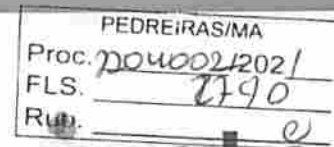 PEDREIRAS/MA
Proc. 2040021202/
FLS. 2790
Rub.